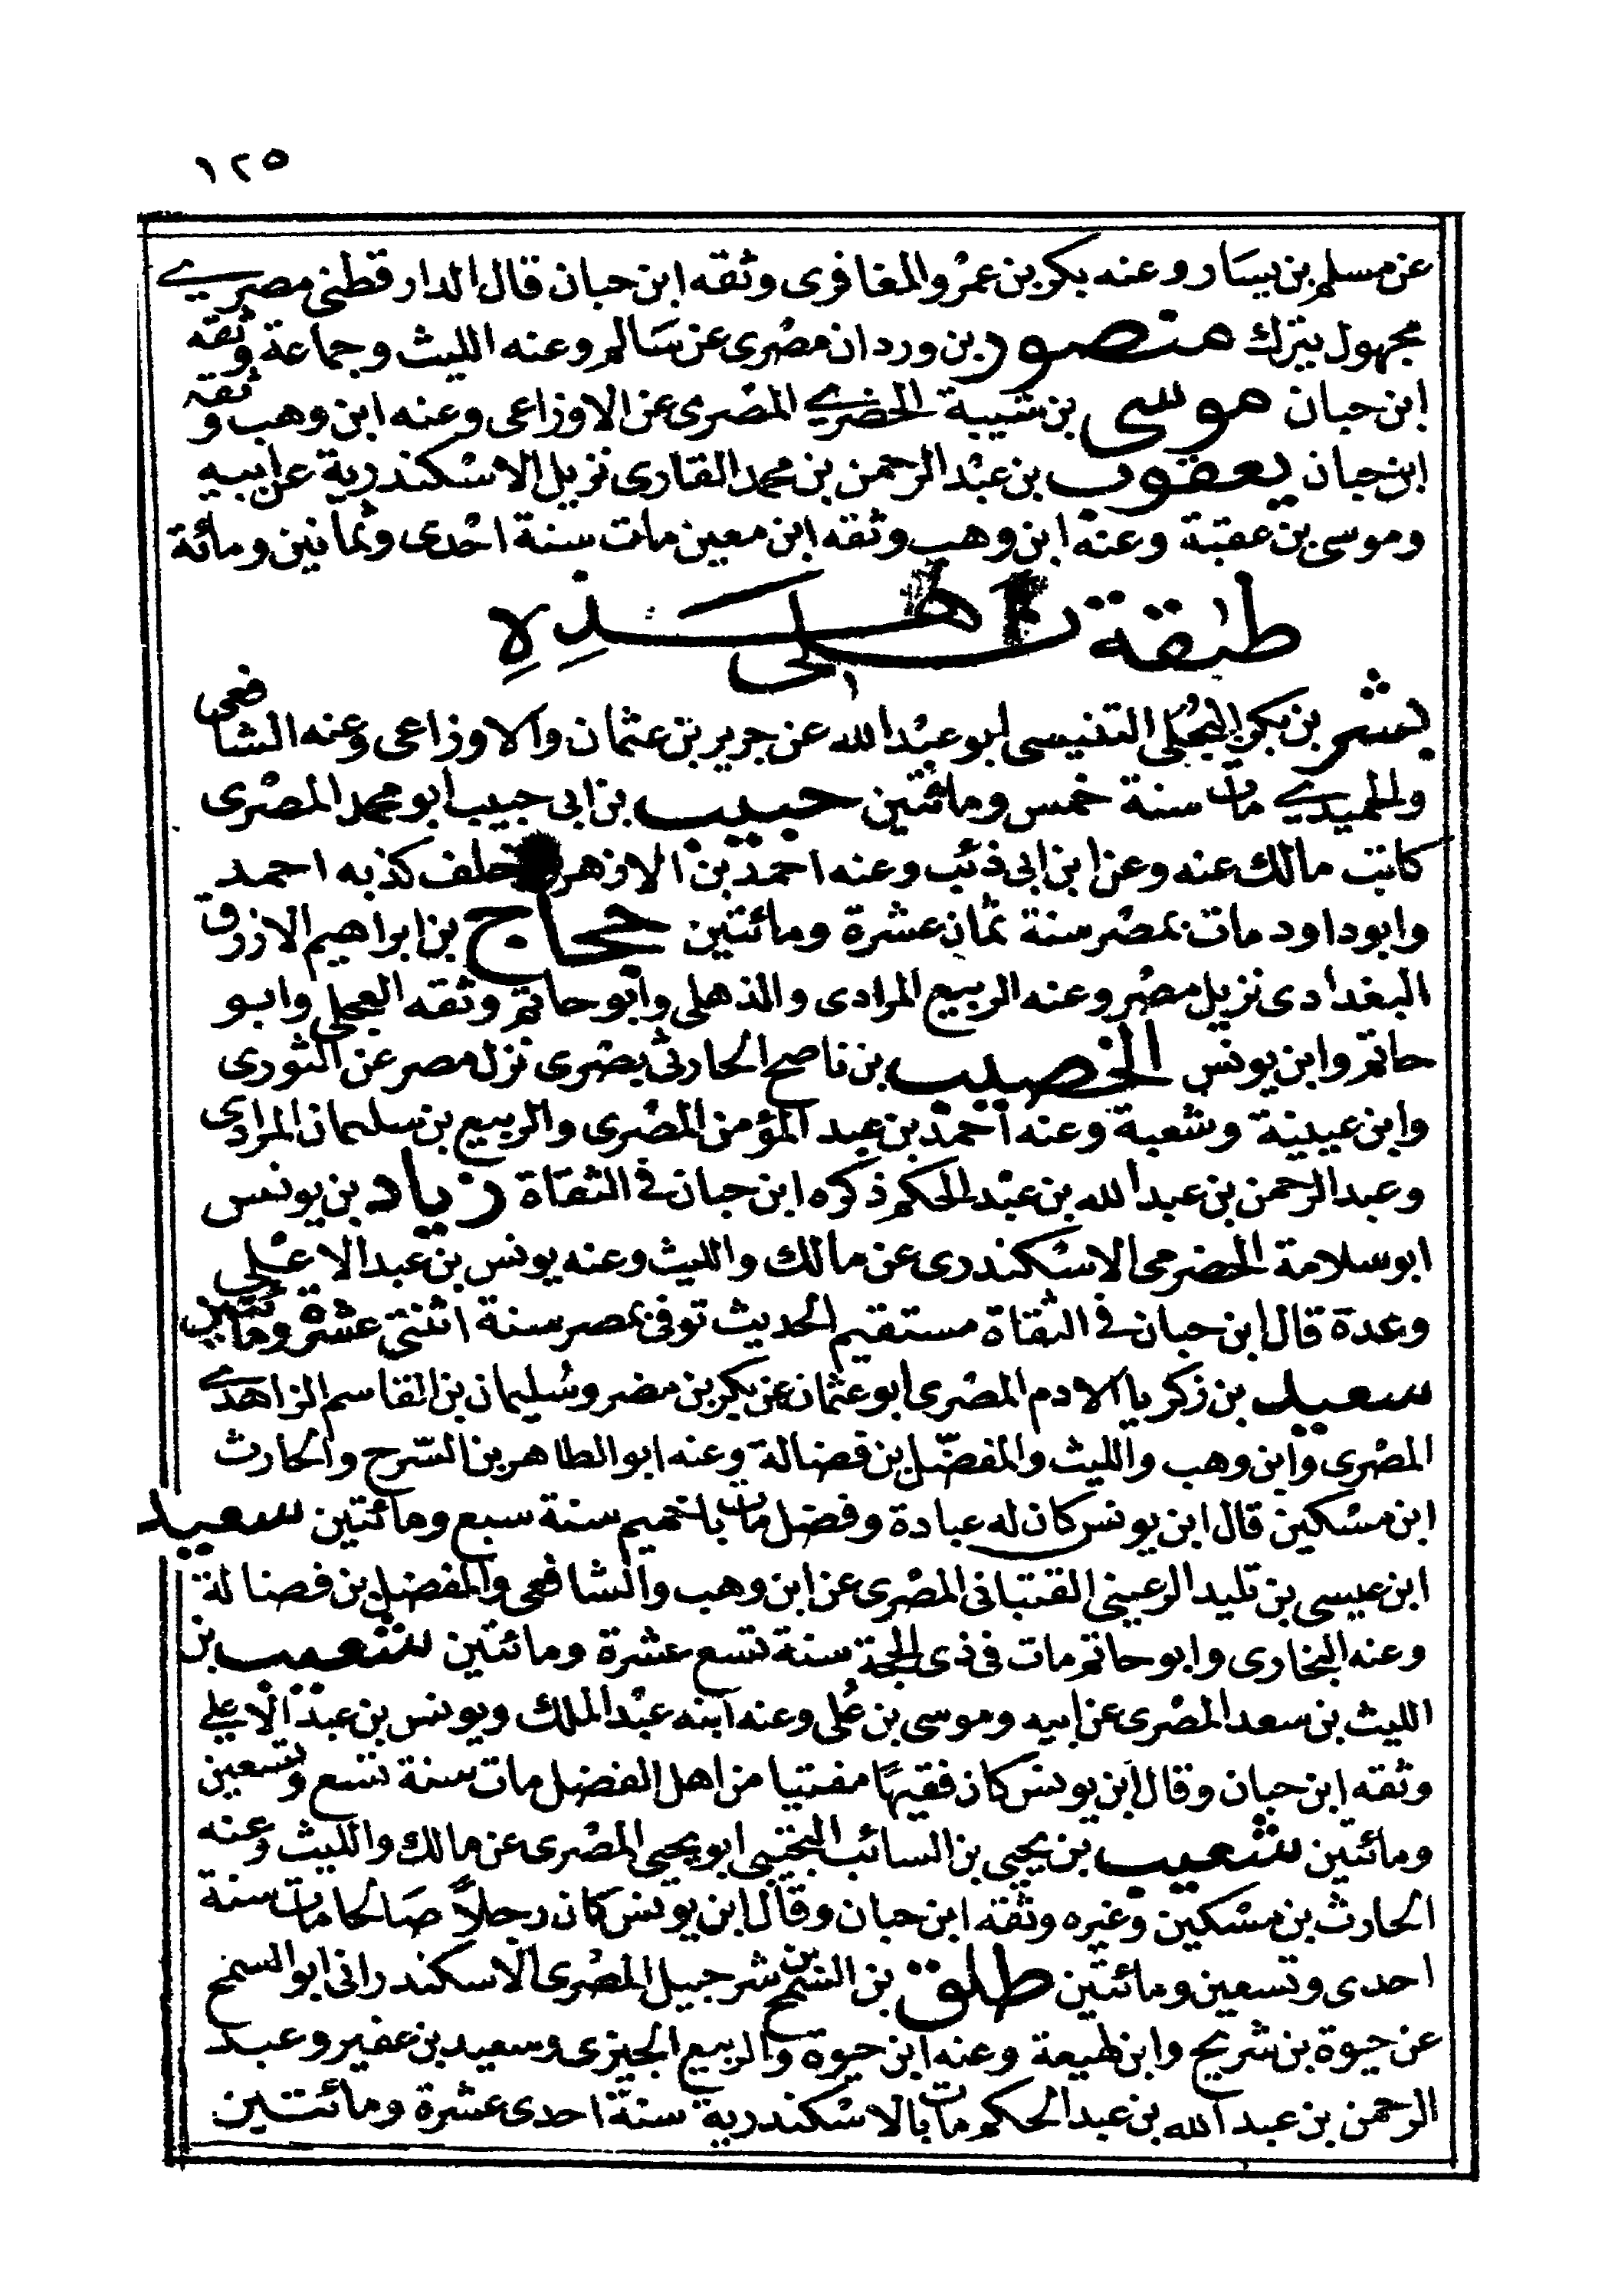 ١٢٥
عن مسلم بن يسار وعنه بكر بن عمرو المغافرى وثقه ابن حبان قال الدارقطنى مصرى
مجهول يترك منصور بن وردان مصرى عن سالم وعنه الليث وجماعة وثقه
ابن حبان موسى بن شيبة الحضرى المصرى عن الاوزاعى وعنه ابن وهب وثقه
ابن حبان يعقوب بن عبد الرحمن بن محمد القارى نزيل الاسكندرية عن ابيه
وموسى بن عقبة وعنه ابن وهب وثقه ابن معين مات سنة احدى وثمانين ومائة
طبقة تلى هذه
بشر بن بكر البجلى التنيسى ابو عبد الله عن جرير بن عثمان والاوزاعى وعنه الشافعى
والحميدى مات سنة خمس ومائتين حبيب بن ابى حبيب ابو محمد المصرى
كاتب مالك عنه وعن ابن ابى ذئب وعنه احمد بن الازهر خلف كذبه احمد
وابو داود مات بمصر سنة ثمان عشرة ومائتين حجاج بن ابراهيم الازرق
البغدادى نزيل مصر وعنه الربيع المرادى والذهلى وابو حاتم وثقه العجلى وابو
حاتم وابن يونس الخصيب بن ناصح الحارثى بصرى نزل مصر عن الثورى
وابن عيينة وشعبة وعنه احمد بن عبد المؤمن المصرى والربيع بن سليمان المرادى
وعبد الرحمن بن عبد الله بن عبد الحكم ذكره ابن حبان فى الثقاة زياد بن يونس
ابو سلامة الحضرمى الاسكندرى عن مالك والليث وعنه يونس بن عبد الاعلى
وعدة قال ابن حبان فى الثقاة مستقيم الحديث توفى بمصر سنة اثنتى عشرة ومائتين
سعيد بن زكريا الادم المصرى ابو عثمان عن بكر بن مضر وسليمان بن القاسم الزاهدى
المصرى وابن وهب والليث والمفضل بن فضالة وعنه ابو الطاهر بن السرح والحارث
ابن مسكين قال ابن يونس كان له عبادة وفضل مات باخميم سنة سبع ومائتين سعيد
ابن عيسى بن تليد الرعينى القتبانى المصرى عن ابن وهب والشافعى والمفضل بن فضالة
وعنه البخارى وابو حاتم مات فى ذى الحجة سنة تسع عشرة ومائتين شعيب بن
الليث بن سعد المصرى عن ابيه وموسى بن على وعنه ابنه عبد الملك ويونس بن عبد الاعلى
وثقه ابن حبان وقال ابن يونس كان فقيها مفتيا من اهل الفضل مات سنة تسع وتسعين
ومائتين شعيب بن يحيى بن السائب التجيبى ابو يحيى المصرى عن مالك والليث وعنه
الحارث بن مسكين وغيره وثقه ابن حبان وقال ابن يونس كان رجلاً صالحا مات سنة
احدى وتسعين ومائتين طلق بن السمح بن شرحبيل المصرى الاسكندرانى ابو السمح
عن حيوة بن شريح وابن لهيعة وعنه ابن حيوة والربيع الجيزى وسعيد بن عفير وعبد
الرحمن بن عبد الله بن عبد الحكم مات بالاسكندرية سنة احدى عشرة ومائتين